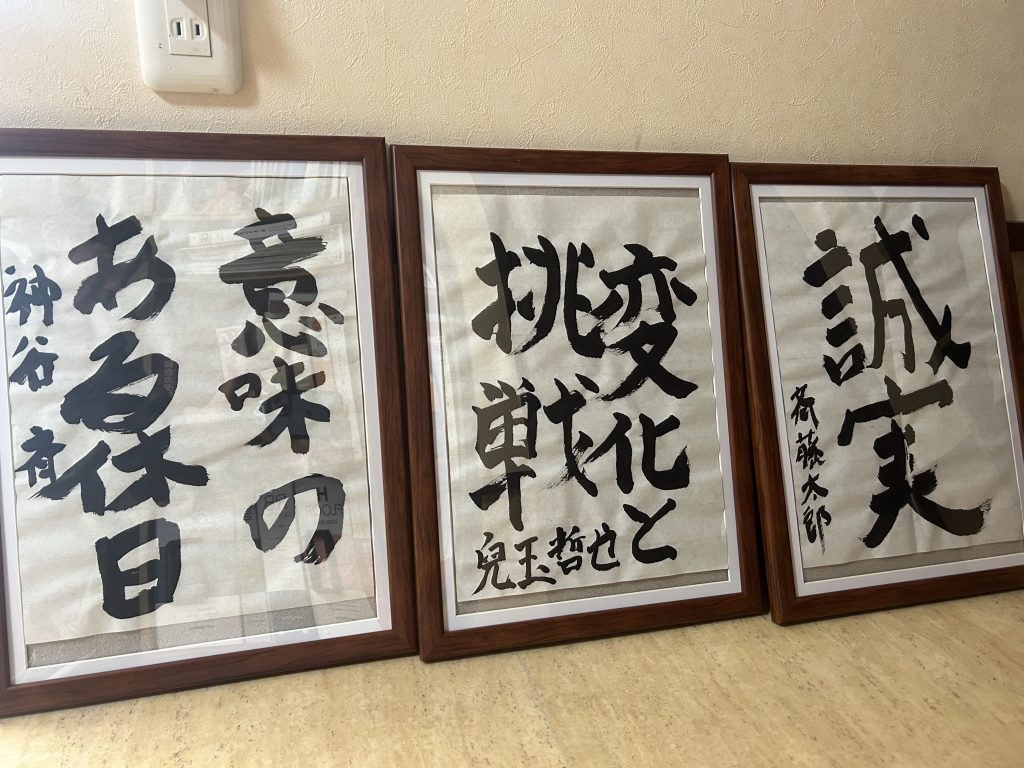 意味の
ある休日
神谷
変化と
挑戦
兒玉哲也
誠実
斎藤太郎